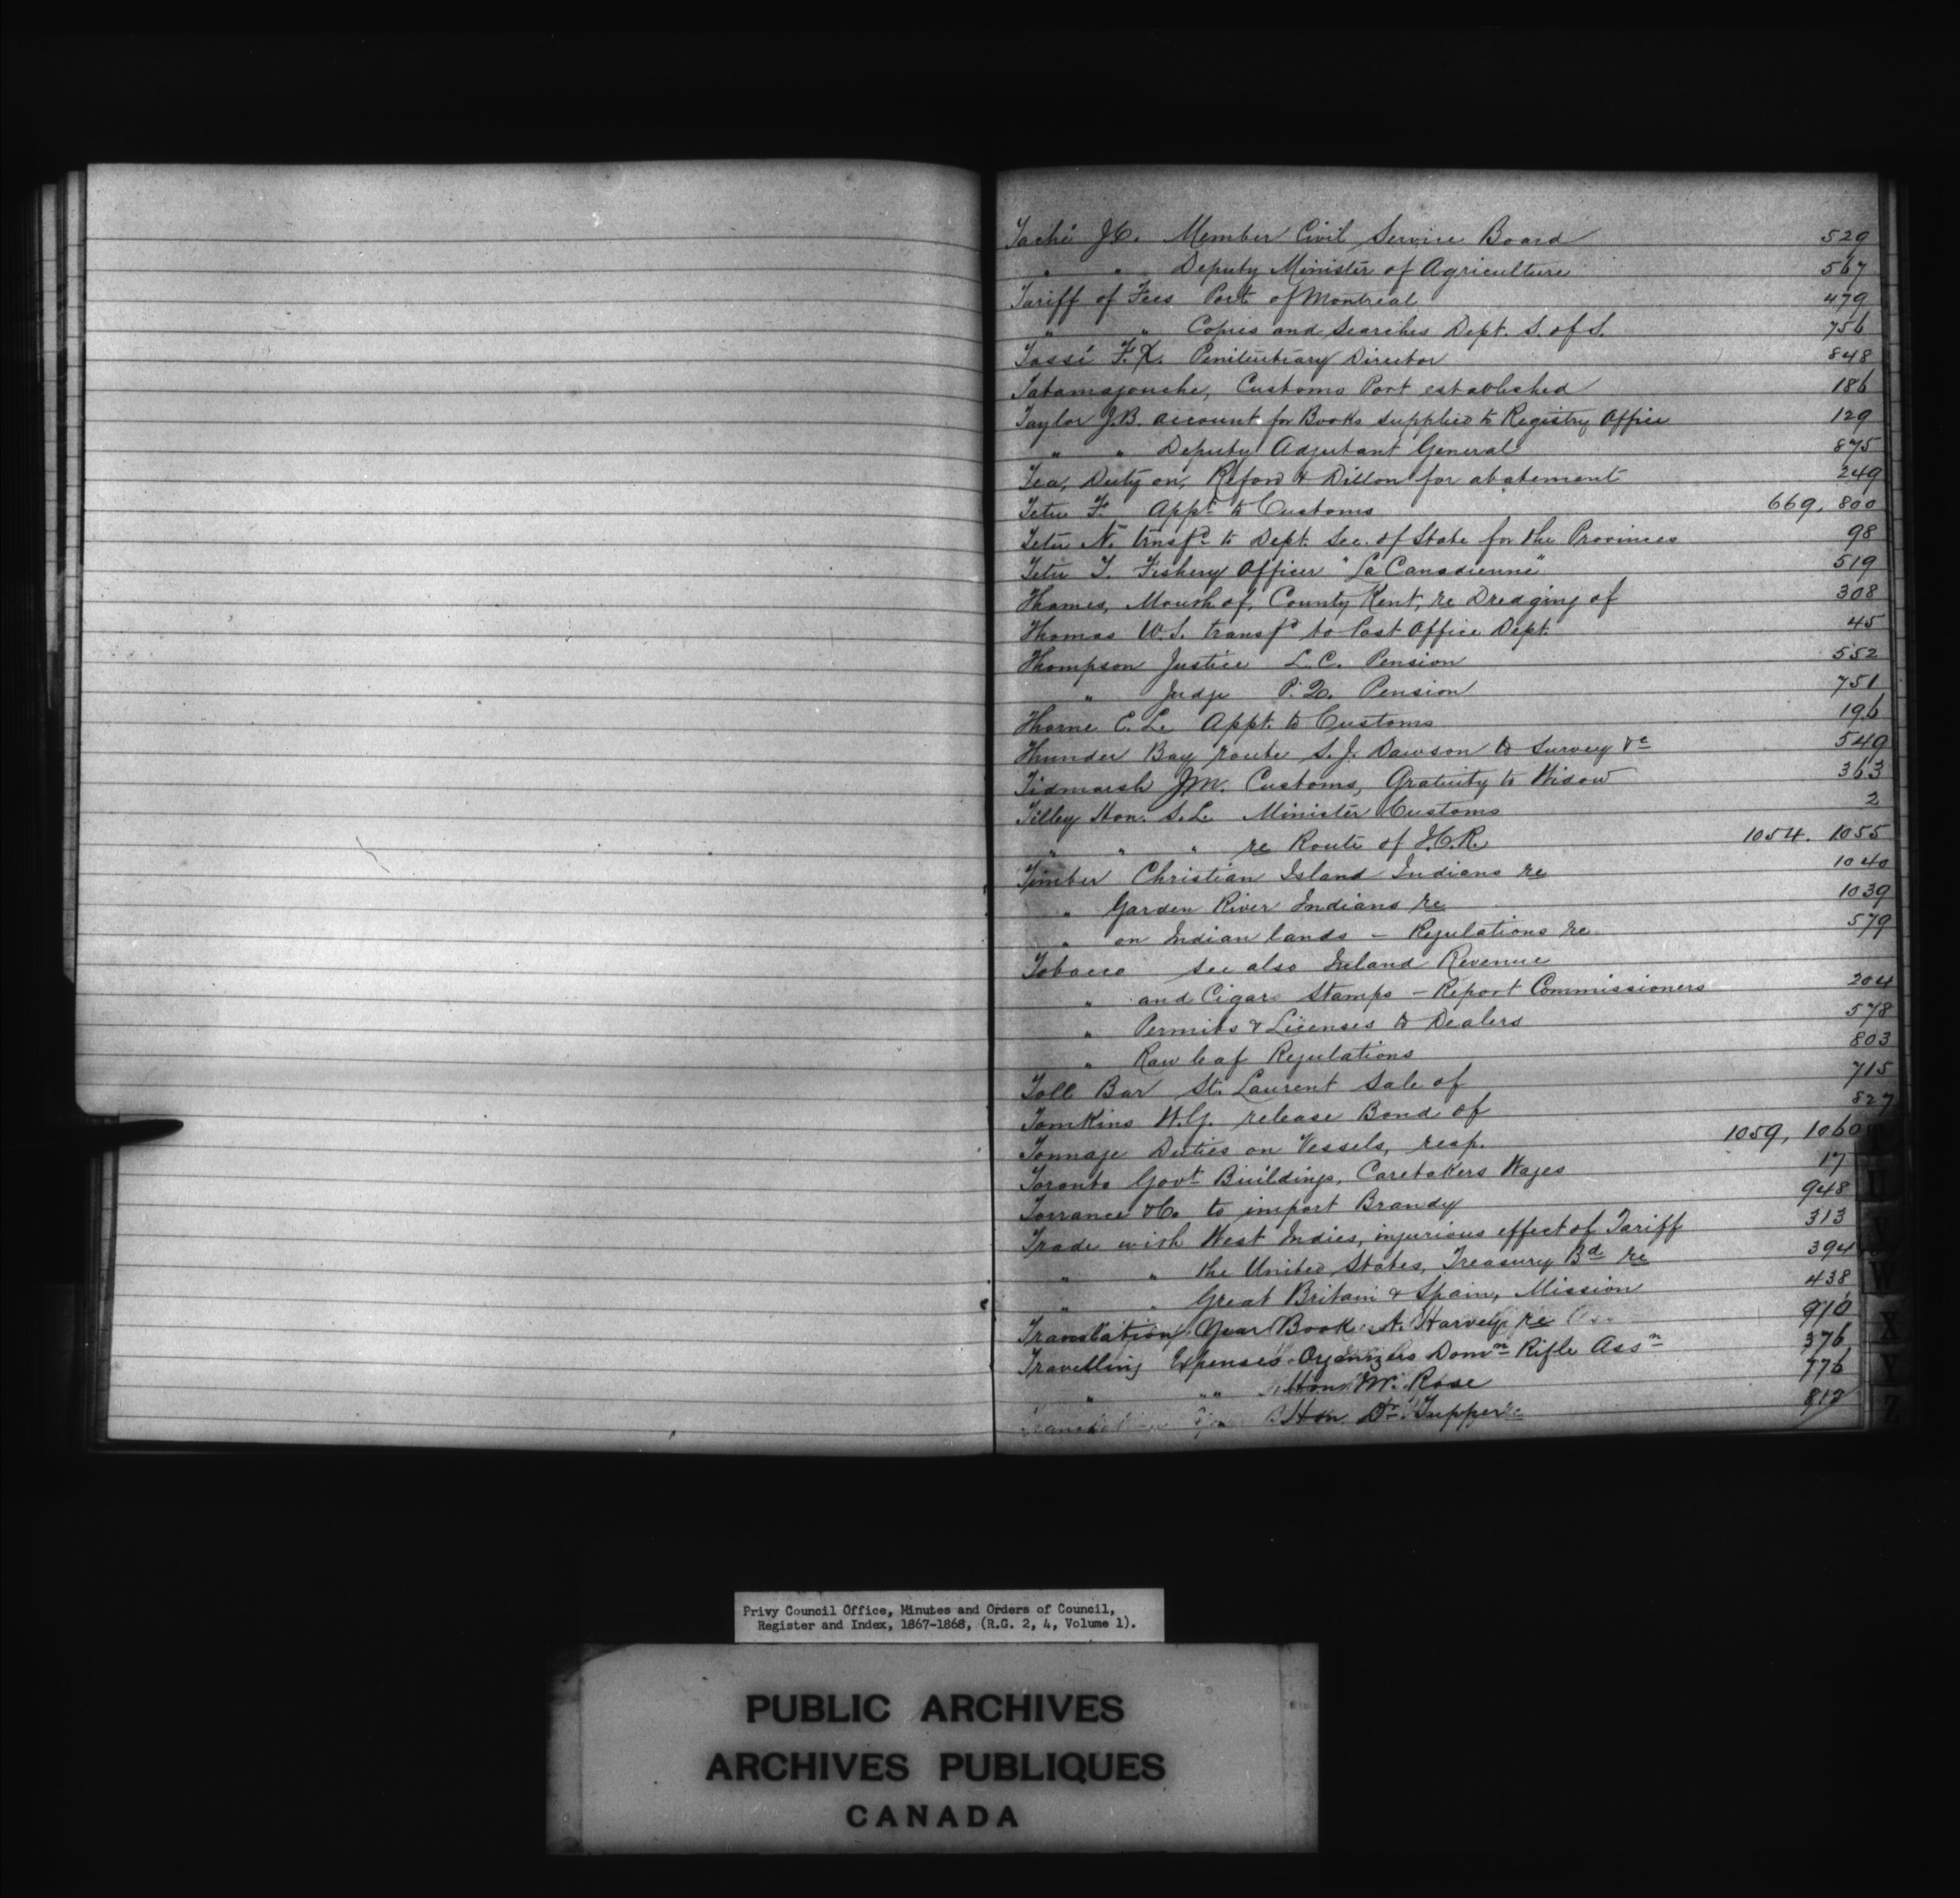 Taché J.C. Member Civil Service Board 529
" " Deputy Minister of Agriculture 567
Tariff of Fees Port of Montreal 479
" " Copies and Searches Dept. S. of S. 756
Tassé F.X. Penitentiary Director 848
Tatamagouche, Customs Port established 186
Taylor J.B. account for Books supplied to Registry Office 129
" " Deputy Adjutant General 875
Tea, Duty on, Reford & Dillon for abatement 249
Tetu F. Appt to Customs 669, 800
Tetu N. trnsfd to Dept. Sec. of State for the Provinces 98
Tetu T. Fishery Officer "La Canadienne" 519
Thames, Mouth of, County Kent, re Dredging of 308
Thomas W.S. transfd to Post Office Dept. 45
Thompson Justice L.C. Pension 552
" Judge P.Q. Pension 751
Thorne E.L. Appt. to Customs 196
Thunder Bay route S.J. Dawson to Survey &c 549
Tidmarsh J.M. Customs, Gratuity to Widow 363
Tilley Hon. S.L. Minister Customs 2
" " " re Route of I.C.R. 1054. 1055
Timber Christian Island Indians re 1040
" Garden River Indians re 1039
" on Indian lands – Regulations re 579
Tobacco see also Inland Revenue
" and Cigar Stamps – Report Commissioners 204
" Permits & Licenses to Dealers 578
" Raw leaf Regulations 803
Toll Bar St. Laurent Sale of 715
Tomkins W.G. release Bond of 827
Tonnage Duties on Vessels, resp. 1059, 1060
Toronto Govt Buildings, Caretakers Wages 17
Torrance & Co to import Brandy 948
Trade with West Indies, injurious effect of Tariff 313
" " the United States, Treasury Bd re 394
" " Great Britain & Spain, Mission 438
Translation Year Book A. Harvey re 910
Travelling Expenses Organizers Domn Rifle Assn 376
" " Hon Mr. Rose 776
Hon Dr. Tupper 812
U
W
X
Y
Z
Privy Council Office, Minutes and Orders of Council,
Register and Index, 1867-1868, (R.G. 2, 4, Volume 1).
PUBLIC ARCHIVES
ARCHIVES PUBLIQUES
CANADA